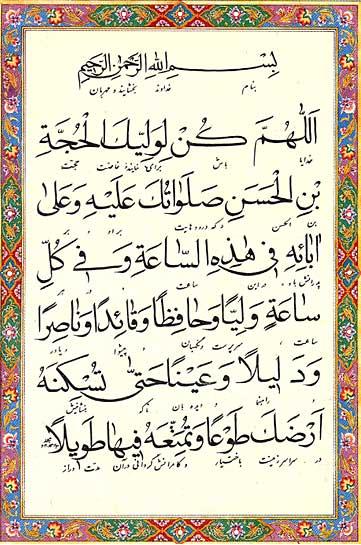 بِسْمِ اللهِ الرَّحْمٰنِ الرَّحیمِ
بنام خداوند بخشاینده و مهربان
اَللّٰهُمَّ کُنْ لِوَلِیِّکَ الْحُجَّةِ
خدایا باش برای نماینده خاصت حجت
بْنِ الْحَسَنِ صَلَوٰاتُکَ عَلَیْهِ وَعَلیٰ
بن الحسن که درودهایت بر او و بر
اٰبائِهِ فی هٰذِهِ السّٰاعَةِ وَفی کُلِّ
پدرانش باد در این ساعت و در هر
سٰاعَةٍ وَلِیًّا وَحٰافِظًا وَقٰائِدًا وَنٰاصِرًا
ساعت سرپرست و نگهبان و پیشوا و یاور
وَدَلیلًا وَعَیْنًا حَتّیٰ تُسْکِنَهُ
و راهنما و دیده بان تا که
اَرْضَکَ طَوْعًا وَتُمَتِّعَهُ فیهٰا طَویلًا
در سراسر زمینت باختیار و کامرانش گردانی در آن مدت دراز